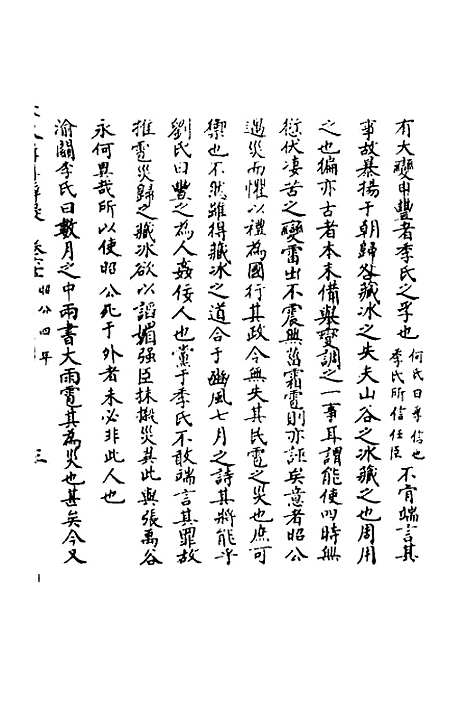 有大變申豐者季氏之孚也何氏曰孚信也季氏所信任臣不肯端言其
事故暴揚于朝歸咎藏冰之失夫山谷之冰藏之也周用
之也徧亦古者本末備與變調之一事耳謂能使四時無
愆伏凄苦之變雷出不震無菑霜雹則亦誣矣意者昭公
遇災而懼以禮為國行其政令無失其民雹之災也庶可
禦也不然雖得藏冰之道合于豳風七月之詩其將能乎
劉氏曰豐之為人姦佞人也黨于季氏不敢端言其罪故
推雹災歸之藏冰欲以謟媚强臣抹摋災異此與張禹谷
永何異哉所以使昭公死于外者未必非此人也
渝關李氏曰數月之中兩書大雨雹其為災也甚矣今又
昭公四年 三